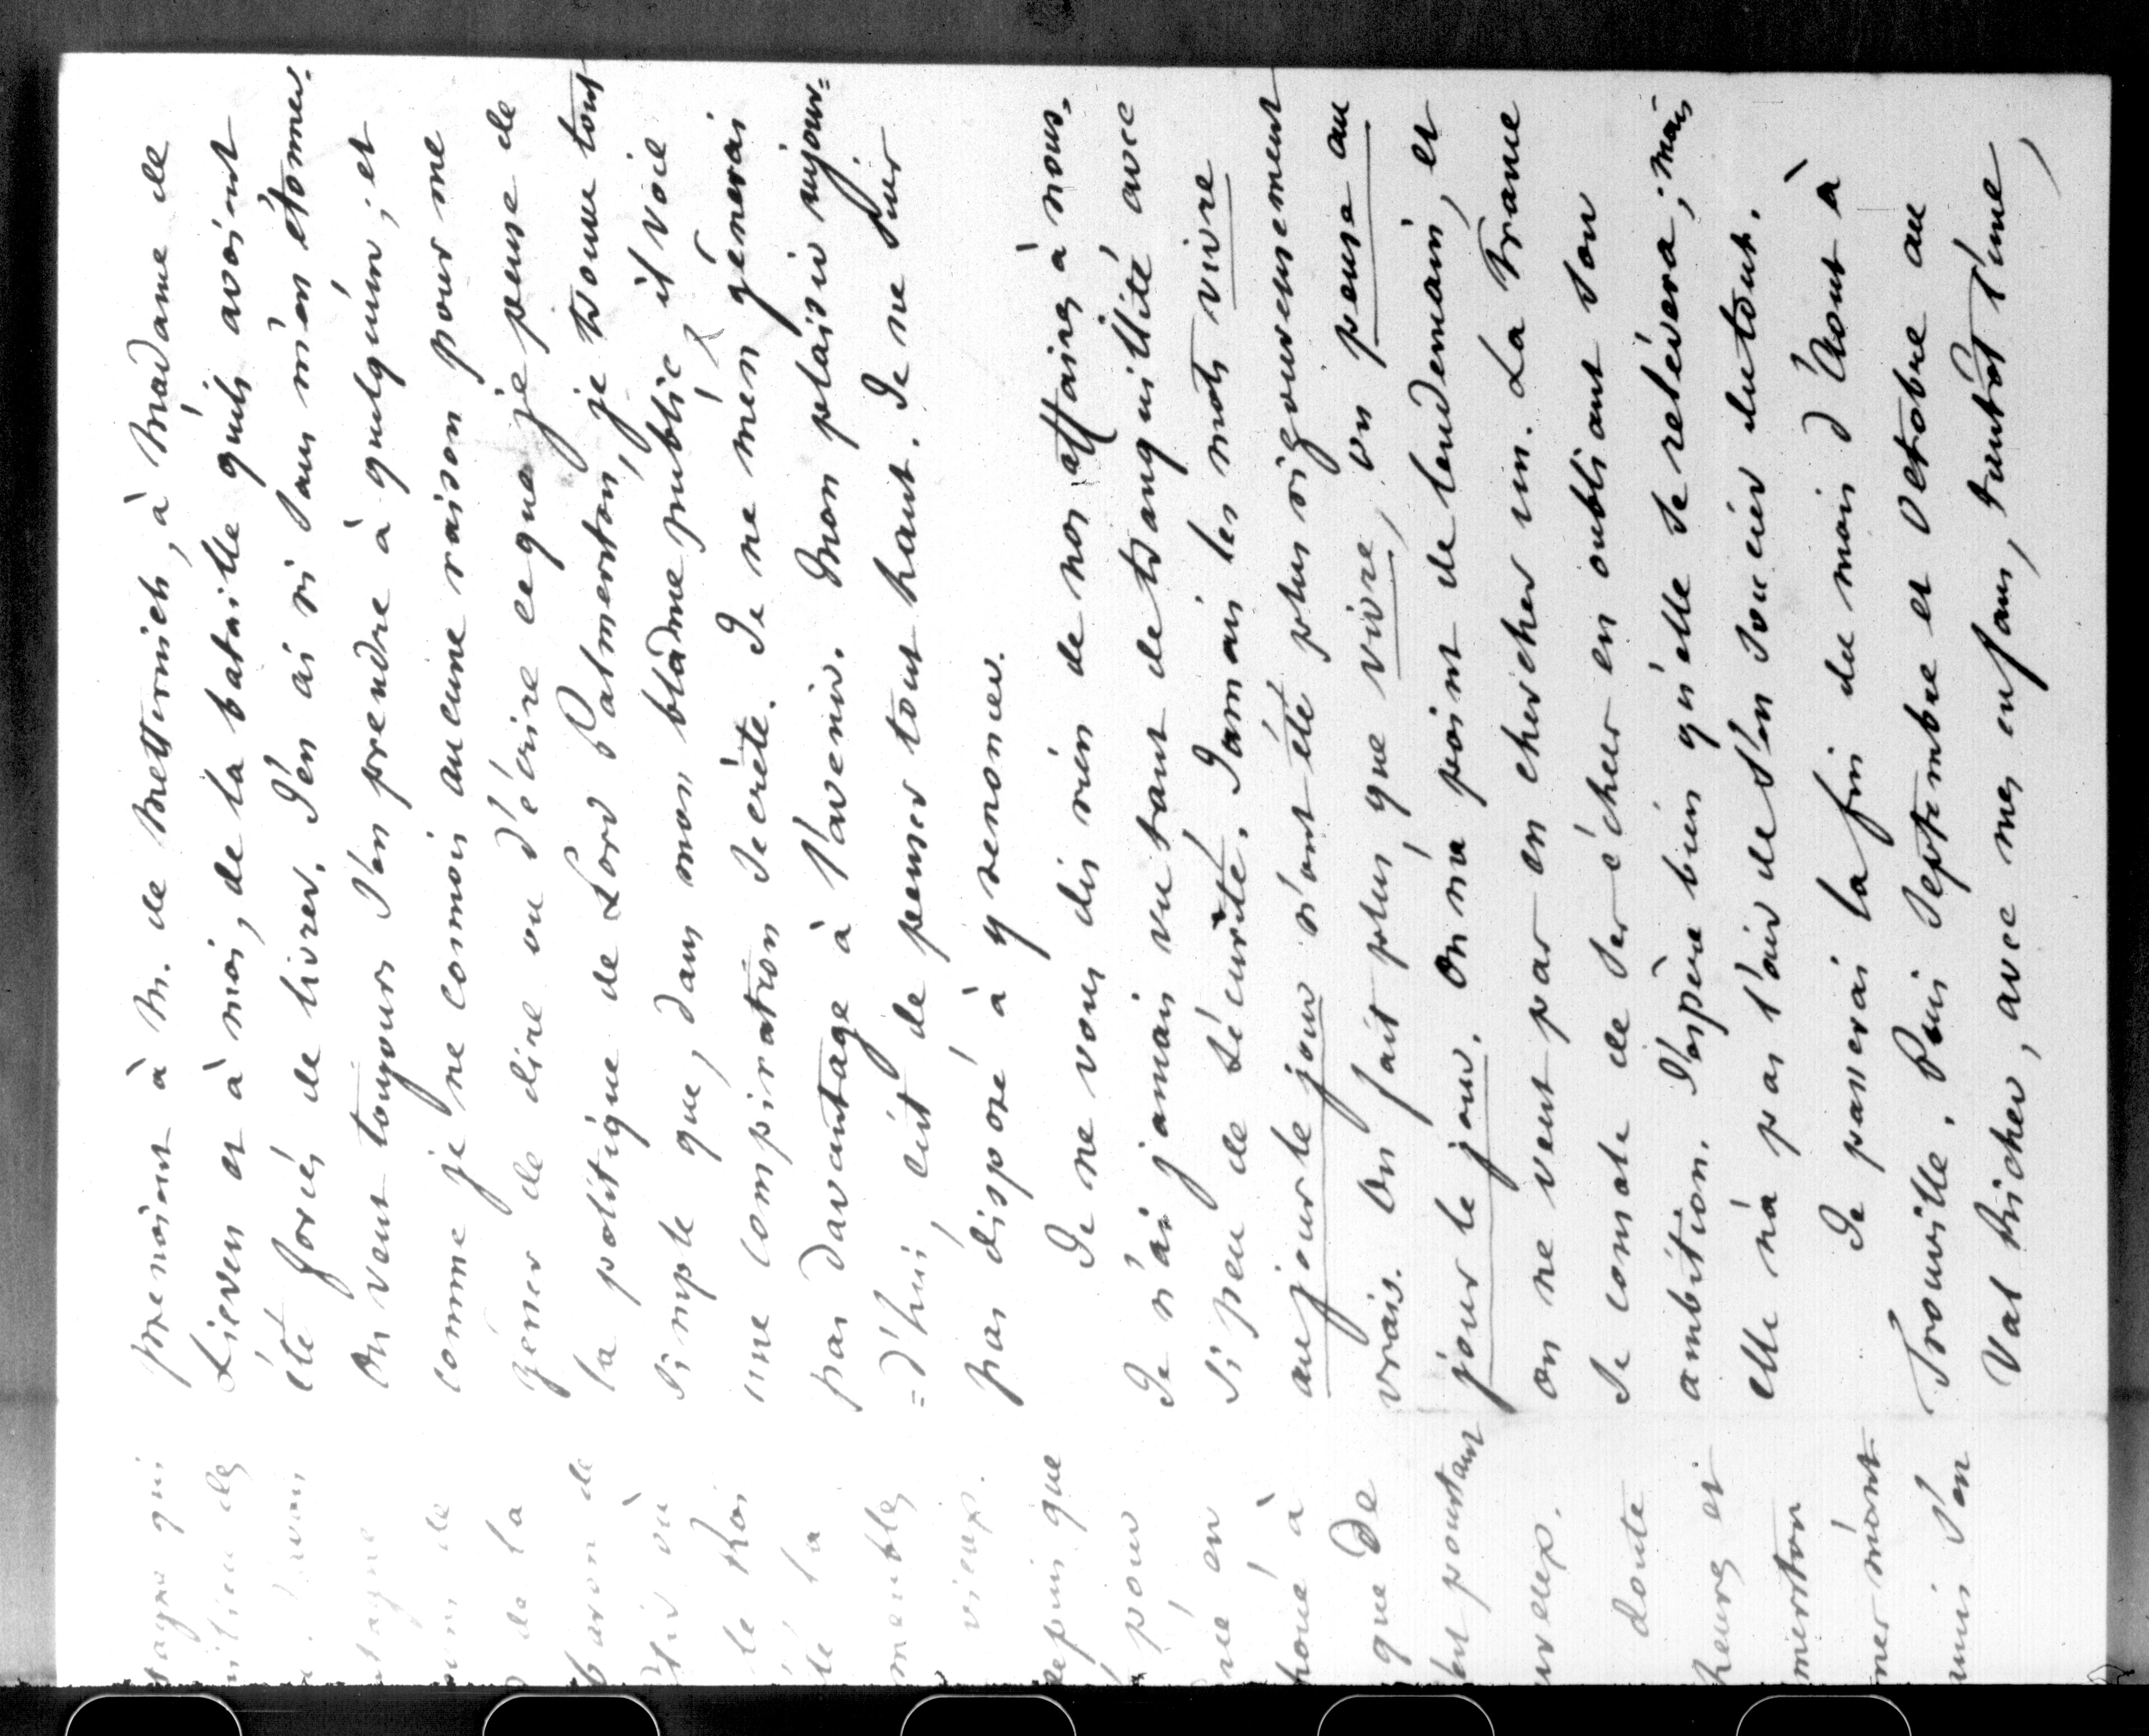 tagne qui
de la
baron de
où
le Roi
la
meubles
vieux.
epuis que
pour
en
à
que De
pourtant
doute
heures et
merston
ner m'ont
s'en
prenoient à M. de Metternich, à Madame de
Lieven et à moi, de la bataille qu'ils avoient
été forcés de livrer. J'en ai ri sans m'en étonner.
On veut toujours s'en prendre à quelqu'un; et
comme je ne connois aucune raison pour me
gêner de dire ou d'écrire ce que je pense de
la politique de Lord Palmerston, je trouve tout
simple que, dans mon blâme public, il voie
une conspiration secrète. Je ne m'en gênerai
pas davantage à l'avenir. Mon plaisir aujour=
=d'hui, c'est de penser tout haut. Je ne suis
pas disposé à y renoncer.
Je ne vous dis rien de nos affaires à nous.
Je n'ai jamais vu tant de tranquillité avec
si peu de sécurité. Jamais les mots vivre
au jour le jour n'ont été plus rigoureusement
vrais. On fait plus que vivre, on pense au
jour le jour. On n'a point de lendemain, et
on ne veut pas en chercher un. La France
se console de ses échecs en oubliant son
ambition. J'espère bien qu'elle se relèvera; mais
elle n'a pas l'air de s'en soucier du tout.
Je passerai la fin du mois d'Aout à
Trouville. Puis Septembre et Octobre au
Val Richer, avec mes enfans, tantôt l'une,